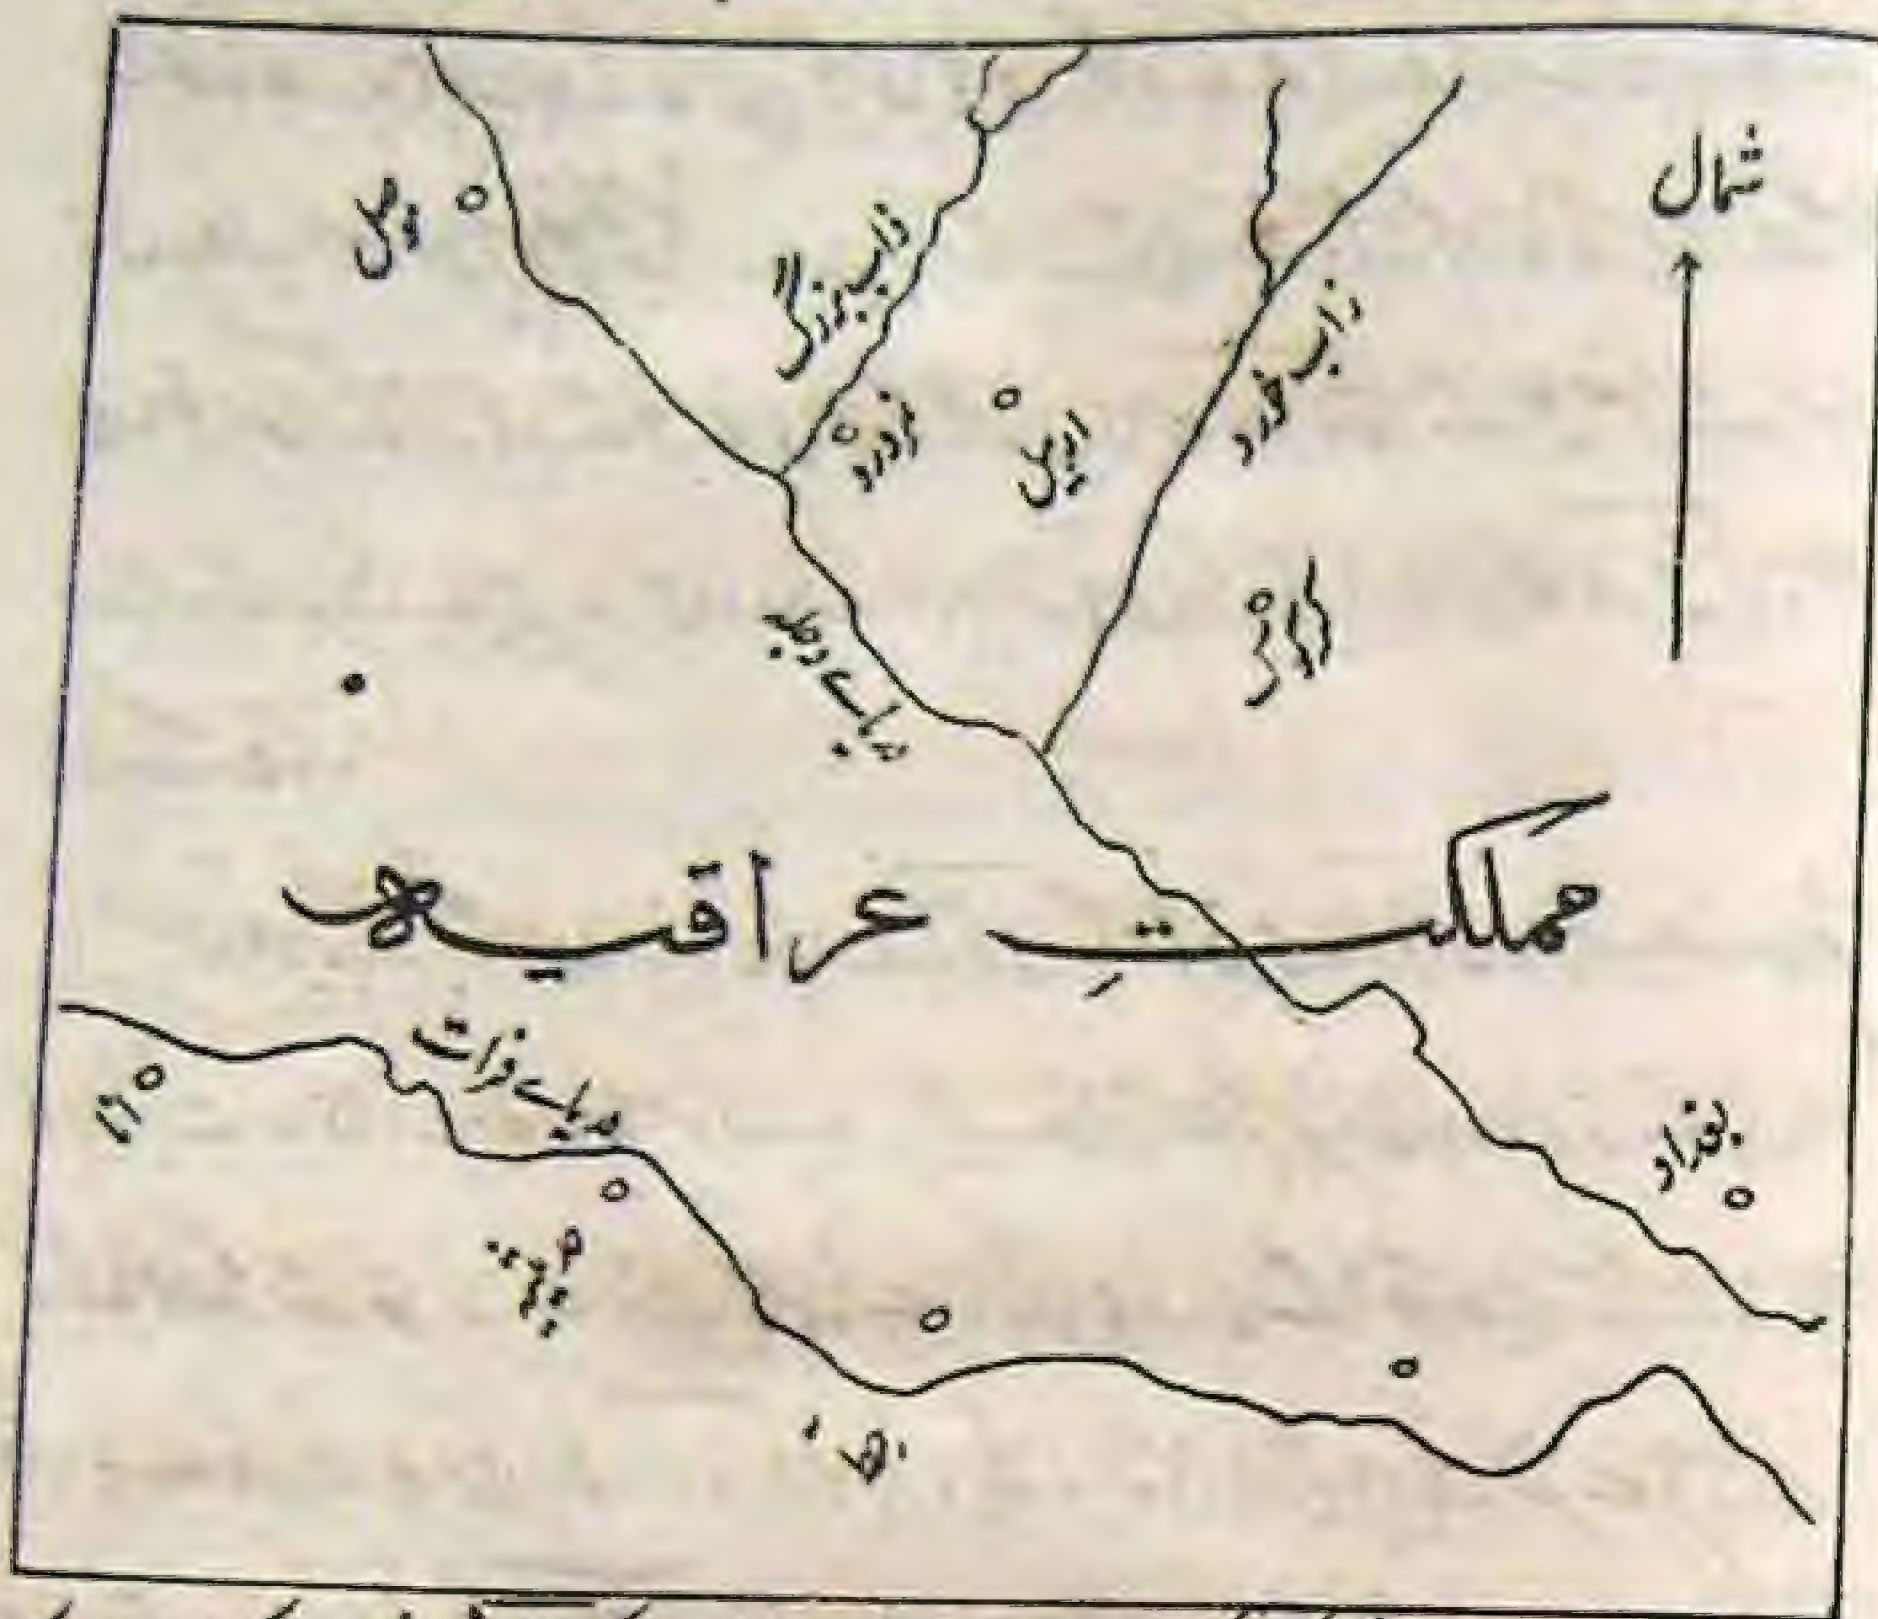 شمال
موصل
زاب بزرگ
نمرود
اربیل
زاب خورد
کرکوک
دریاے دجلہ
مملکتِ عراقیہ
دریاے فرات
انا
بغداد